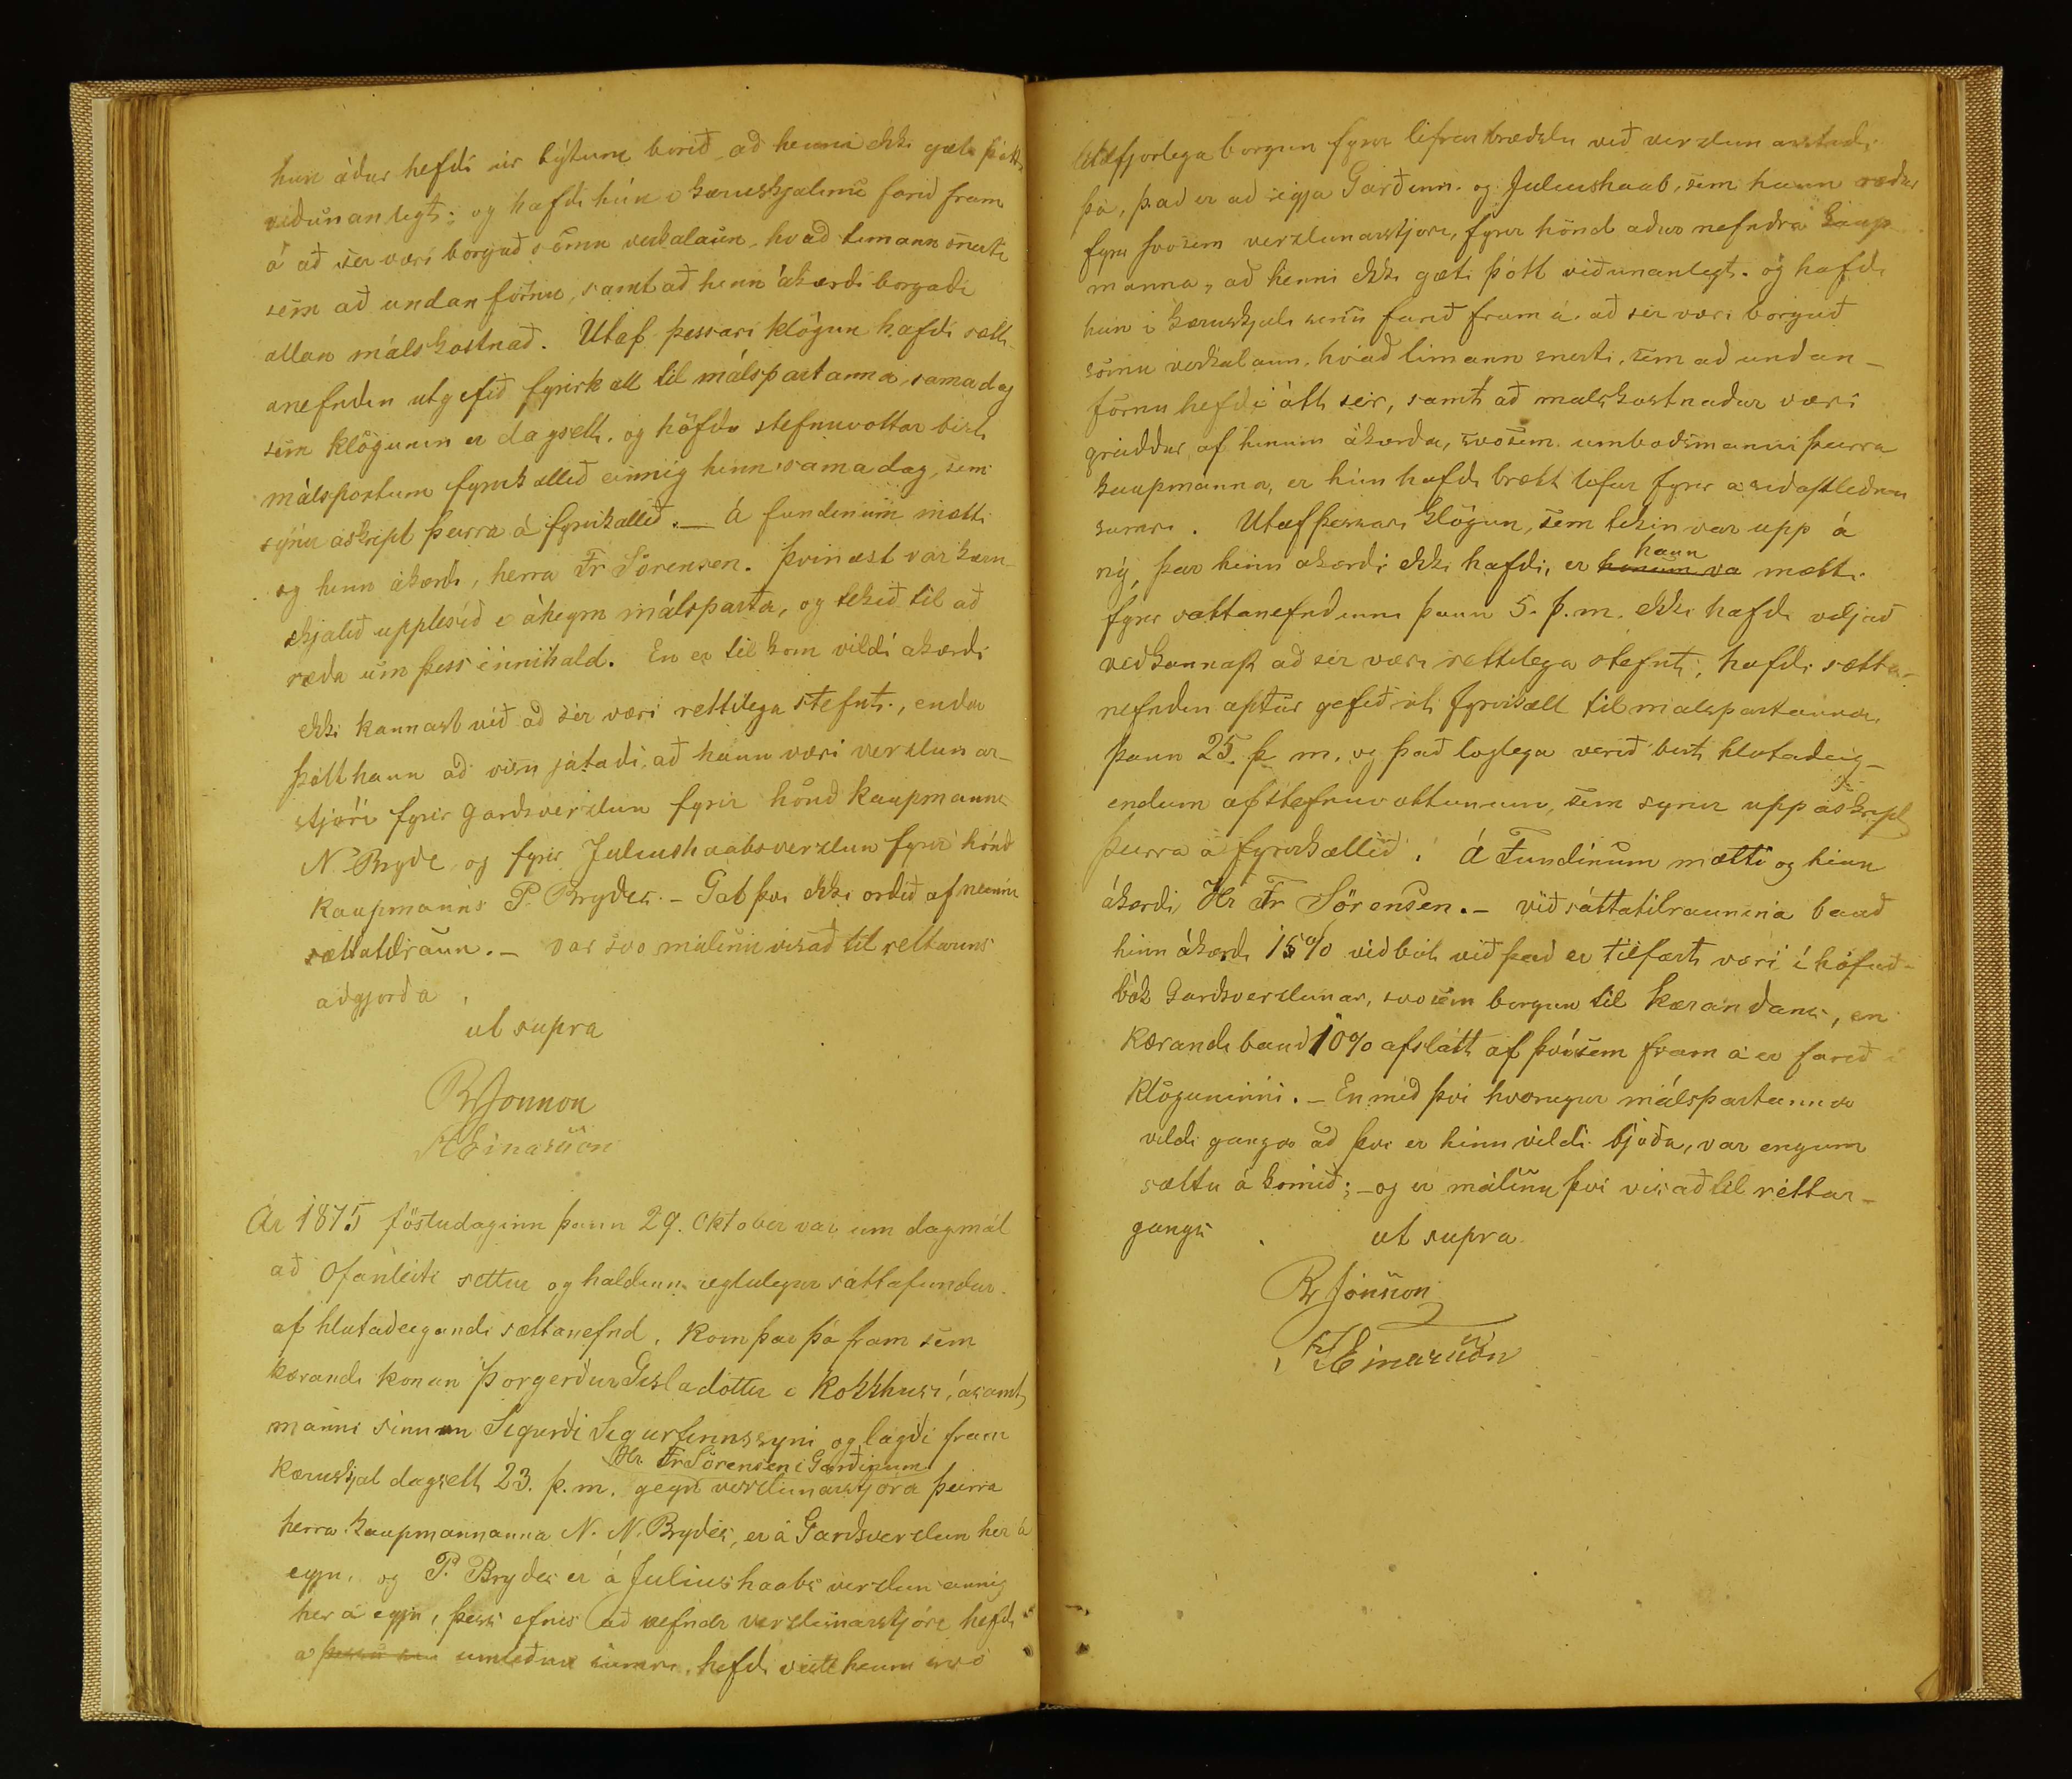 hun áður hefdi úr býtum borið, að henni ekki gæti þótt
viðunanlegt; og hafdi hún i kæruskjalinu farið fram
á að sèr væri borguð sömu verkalaun, hvað timann snerti
sem að undan förnu, samt að hinn ákærdi borgadi
allan málskostnað. Utaf þessari klögun hafdi sátt-
anefndin utgefið fyrirkall til málspartanna, sama dag
sem klögunin er dagsett, og höfdu stefnuvottar birt
málspörtum fyrirkallið einnig hinn sama dag, sem
sýnir áskript þeirra á fyrirkallið. — Á fundinum mætti
og hinn ákærdi, herra Fr Sörensen. Þvinæst var kæru-
skjalið upplesið i áheyrn málsparta, og tekið til að
ræda um þess innihald. En er til kom vildi akærdi
ekki kannast við að sèr væri rettilega stefnt, enda
þótt hann að visu játadi, að hann væri verzlunar-
stjóri fyrir Gardsverzlun fyrir hönd kaupmanns
N. Bryde og fyrir Juliushaabsverzlun fyrir hönd
kaupmanns P. Brydes. - Gat þvi ekki ordið af neinni
sættatilraun. - var svo málinu visað til rettarins
adgjorda.
ut supra
BrJónsson
Einarsson
Ár 1875 föstudaginn þann 29. Oktober var um dagmál
að Ofanleiti settur og haldinn reglulegur sáttafundur
af hlutadeigandi sættanefnd. Kom þar þá fram sem
kærandi konan Þorgerdur Gisladottir i Kokkhusi, ásamt
manni sinum Sigurdi Sigurfinnssyni og lagdi fram
Hr. Fr Sörensen i Garðinum
kæruskjal dagsett 23. þ. m. gegn verzlunarstjóra þeirra
herra kaupmannanna N. N. Brydes, er á Gardsverzlun her á
eyju, og P. Brydes er á Juliushaabs verzlun einnig
her á eyju, þess efnis að nefndr verzlunarstjóri hefdi
a umlidnu sumri, hefdi veitt henni svo
borgun fyrir lifrarbrædslu við verzlunarstadi
þá, það er að segja Garðinn og Juliushaab, sem hann rædur
fyrir svosem verzlunarstjóri, fyrir hönd adur nefndra kaup-
manna, að henni ekki gæti þótt viðunanlegt. og hafdi
hún i kæruskjali sinu farið fram á, að sèr væri borguð
sömu verkalaun, hvað timann snerti, sem að undan-
förnu hefdi átt sèr, samt að malskostnadur væri
greiddur af hinum ákærda, svosem umbodsmanni þeirra
kaupmanna, er hún hafdi brætt lifur fyrir a sidastlidnu
sumri. Utaf þessari klögun, sem tekin var upp á
hann
ný, þar hinn akærdi ekki hafdi, er honum va mætti
fyrir sættanefndinni þann 5. þ. m. ekki hafdi viljað
vidkannast að sèr væri rettilega stefnt, hafdi sætta-
nefndin aptur gefið út fyrirkall til malspartanna
þann 25. þ m. og það loglega verið birt hlutadeig-
endum af stefnuvottunum, sem synir uppáskript
þeirra á fyrirkallið. Á Fundinum mætti og hinn
ákærdi Hr Fr Sörensen. - við sáttatilraunina bauð
hinn ákærdi 15% viðbót við það er tilfært væri i höfuð-
bók Gardsverzlunar, svosem borgun til kærandans, en
kærandi bauð 10% afslátt af þvi sem fram á er farið i
klöguninni. - En með þvi hvorugur málspartanna
vildi ganga að þvi er hinn vildi bjoða, var engum
sættu á komið; - og er málinu þvi visað til réttar-
gangs. ut supra
Br Jónsson
Einarsson